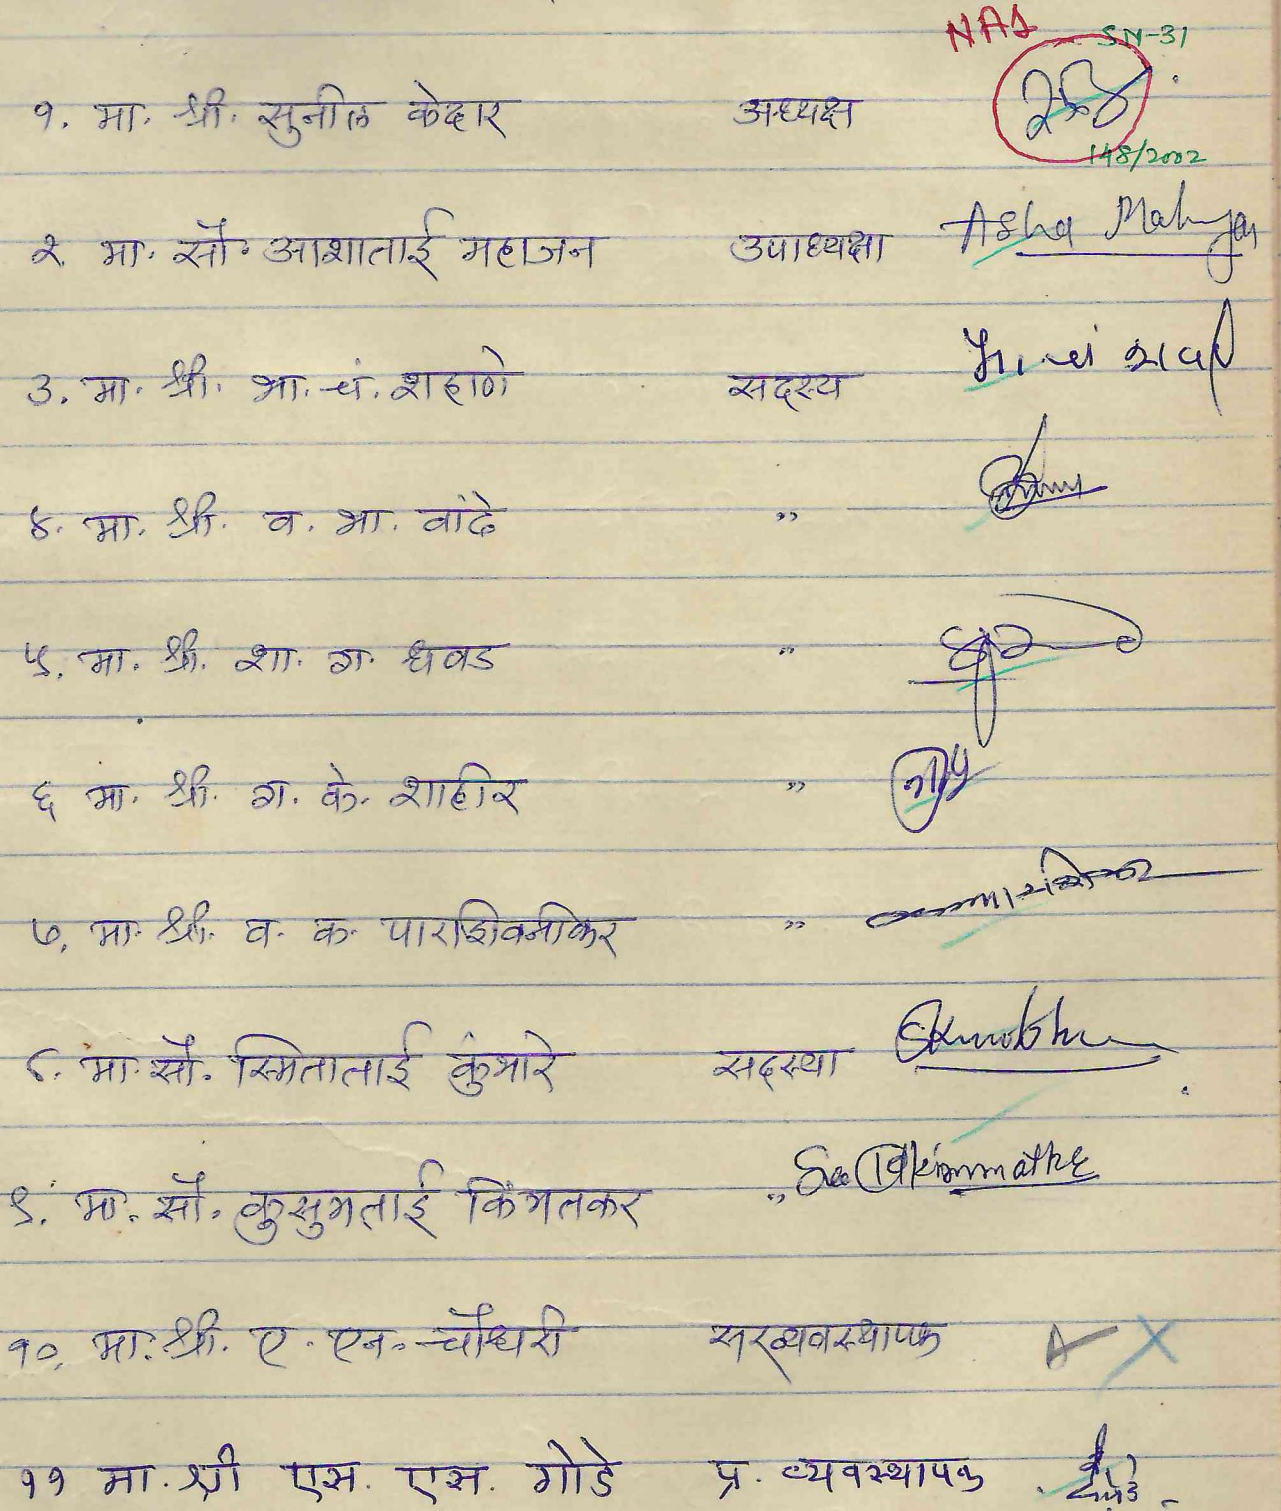 NAS SN-31
१. मा. श्री. सुनील केदार अध्यक्ष
148/2002
२. मा. सौ. आशाताई महाजन उपाध्यक्षा Asha Mahajan
३. मा. श्री. भा. चं. शहाणे सदस्य भा. चं
४. मा. श्री. व. भा. वांदे "
५. मा. श्री. शा. ग. धवड "
६ मा. श्री. ग. के. शाहीर "
७. मा. श्री. व. क. पारशिवनीकर "
८. मा. सौ. स्मिताताई कुंभारे सदस्या
९. मा. सौ. कुसुमताई किंमतकर "
१०. मा. श्री. ए. एन. चौधरी सरव्यवस्थापक
११ मा. श्री एस. एस. गोडे प्र. व्यवस्थापक